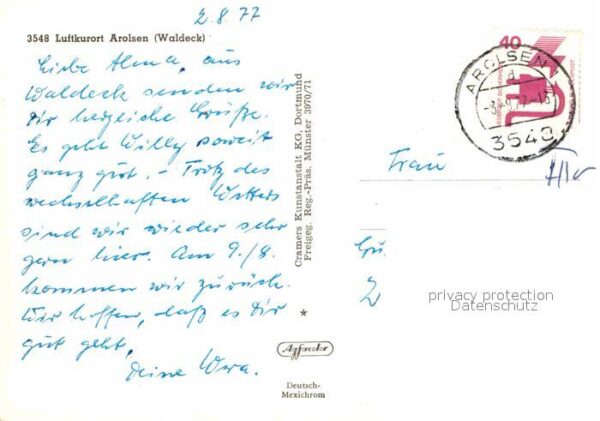 2.8.77
3548 Luftkurort Arolsen (Waldeck)
Liebe Alma, aus
Waldeck senden wir
Dir herzliche Grüße.
Es geht Willy soweit
ganz gut. - Trotz des
wechselhaften Wetters
sind wir wieder sehr
gern hier. Am 9./8.
kommen wir zurück.
Wir hoffen, daß es Dir
gut geht.
Deine
Cramers Kunstanstalt KG, Dortmund
Freigeg. Reg.-Präs. Münster 3970/71
Agfacolor
Deutsch-
Mexichrom
40
AROLSEN
3548
Frau
privacy protection
Datenschutz